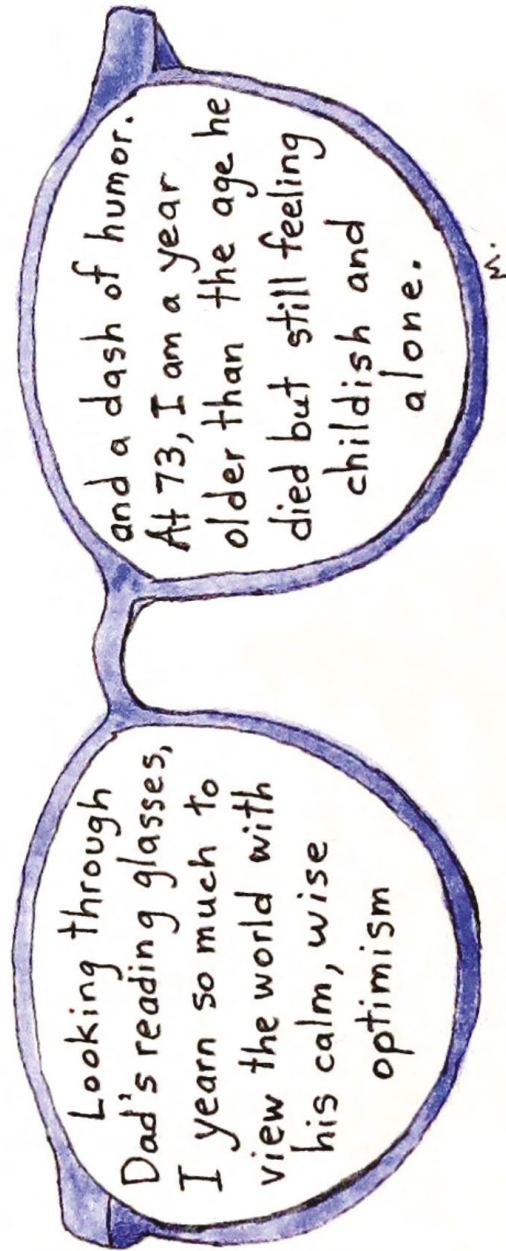 Looking through
Dad's reading glasses,
I yearn so much to
view the world with
his calm, wise
optimism
and a dash of humor.
At 73, I am a year
older than the age he
died but still feeling
childish and
alone.